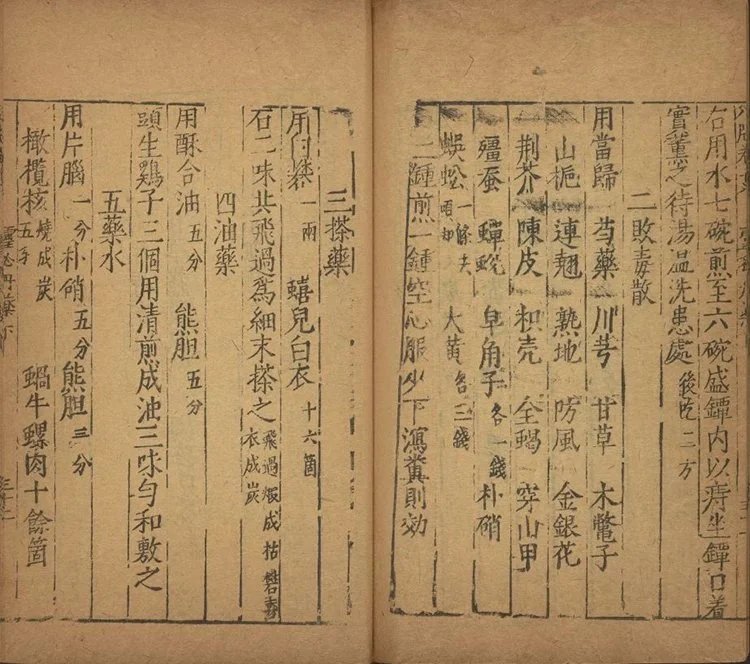 右用水七碗煎至六碗盛鐔內以痔坐鐔口着
實薰之待湯温洗患處 後吃二方
二敗毒散
用當歸 芍藥 川芎 甘草 木鼈子
山梔 連翹 熟地 防風 金銀花
荆芥 陳皮 枳壳 全蝎 穿山甲
殭蚕 蟬蛻 皁角子 各一錢 朴硝
蜈蚣 一條去 大黄 各三錢
二鍾煎一鍾空心服少下瀉糞則効
三搽藥
用 一兩 蟢兒白衣 十六箇
石二味共飛過爲細末搽之 飛過煆成枯礬 衣成炭
四油藥
用酥合油 五分 熊胆 五分
頭生鷄子三個用清煎成油三味勻和敷之
五藥水
用片腦 一分 朴硝 五分 熊胆 三分
橄欖核 燒成炭 蝸牛螺肉十餘箇